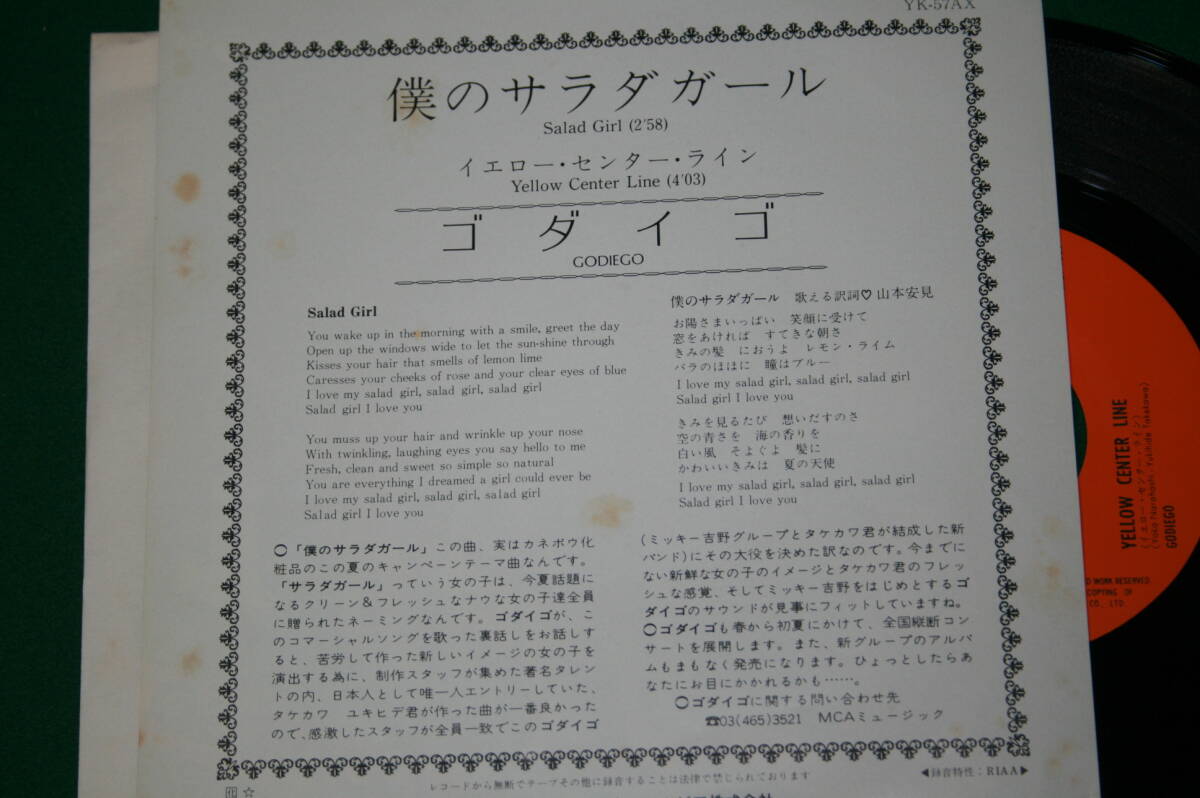 YK-57AX
僕のサラダガール
Salad Girl (2′58)
イエロー・センター・ライン
Yellow Center Line (4′03)
ゴダイゴ
GODIEGO
Salad Girl
You wake up in the morning with a smile, greet the day
Open up the windows wide to let the sun-shine through
Kisses your hair that smells of lemon lime
Caresses your cheeks of rose and your clear eyes of blue
I love my salad girl, salad girl, salad girl
Salad girl I love you
You muss up your hair and wrinkle up your nose
With twinkling, laughing eyes you say hello to me
Fresh, clean and sweet so simple so natural
You are everything I dreamed a girl could ever be
I love my salad girl, salad girl, salad girl
Salad girl I love you
僕のサラダガール 歌える訳詞♡山本安見
お陽さまいっぱい 笑顔に受けて
窓をあければ すてきな朝さ
きみの髪 におうよ レモン・ライム
バラのほほに 瞳はブルー
I love my salad girl, salad girl, salad girl
Salad girl I love you
きみを見るたび 想いだすのさ
空の青さを 海の香りを
白い風 そよぐよ 髪に
かわいいきみは 夏の天使
I love my salad girl, salad girl, salad girl
Salad girl I love you
○「僕のサラダガール」この曲、実はカネボウ化
粧品のこの夏のキャンペーンテーマ曲なんです。
「サラダガール」っていう女の子は、今夏話題に
なるクリーン&フレッシュなナウな女の子達全員
に贈られたネーミングなんです。ゴダイゴが、こ
のコマーシャルソングを歌った裏話しをお話しす
ると、苦労して作った新しいイメージの女の子を
演出する為に、制作スタッフが集めた著名タレン
トの内、日本人として唯一人エントリーしていた、
タケカワ ユキヒデ君が作った曲が一番良かった
ので、感激したスタッフが全員一致でこのゴダイゴ
(ミッキー吉野グループとタケカワ君が結成した新
バンド)にその大役を決めた訳なのです。今までに
ない新鮮な女の子のイメージとタケカワ君のフレッ
シュな感覚、そしてミッキー吉野をはじめとするゴ
ダイゴのサウンドが見事にフィットしていますね。
○ゴダイゴも春から初夏にかけて、全国縦断コン
サートを展開します。また、新グループのアルバ
ムもまもなく発売になります。ひょっとしたらあ
なたにお目にかかれるかも……。
○ゴダイゴに関する問い合わせ先
☎03(465)3521 MCAミュージック
レコードから無断でテープその他に録音することは法律で禁じられております
◀録音特性:RIAA▶
☆
YELLOW CENTER LINE
(イエロー・センター・ライン)
(Yoko Narahashi・Yukihide Takekawa)
GODIEGO
WORK RESERVED
COPYING OF
CO., LTD.